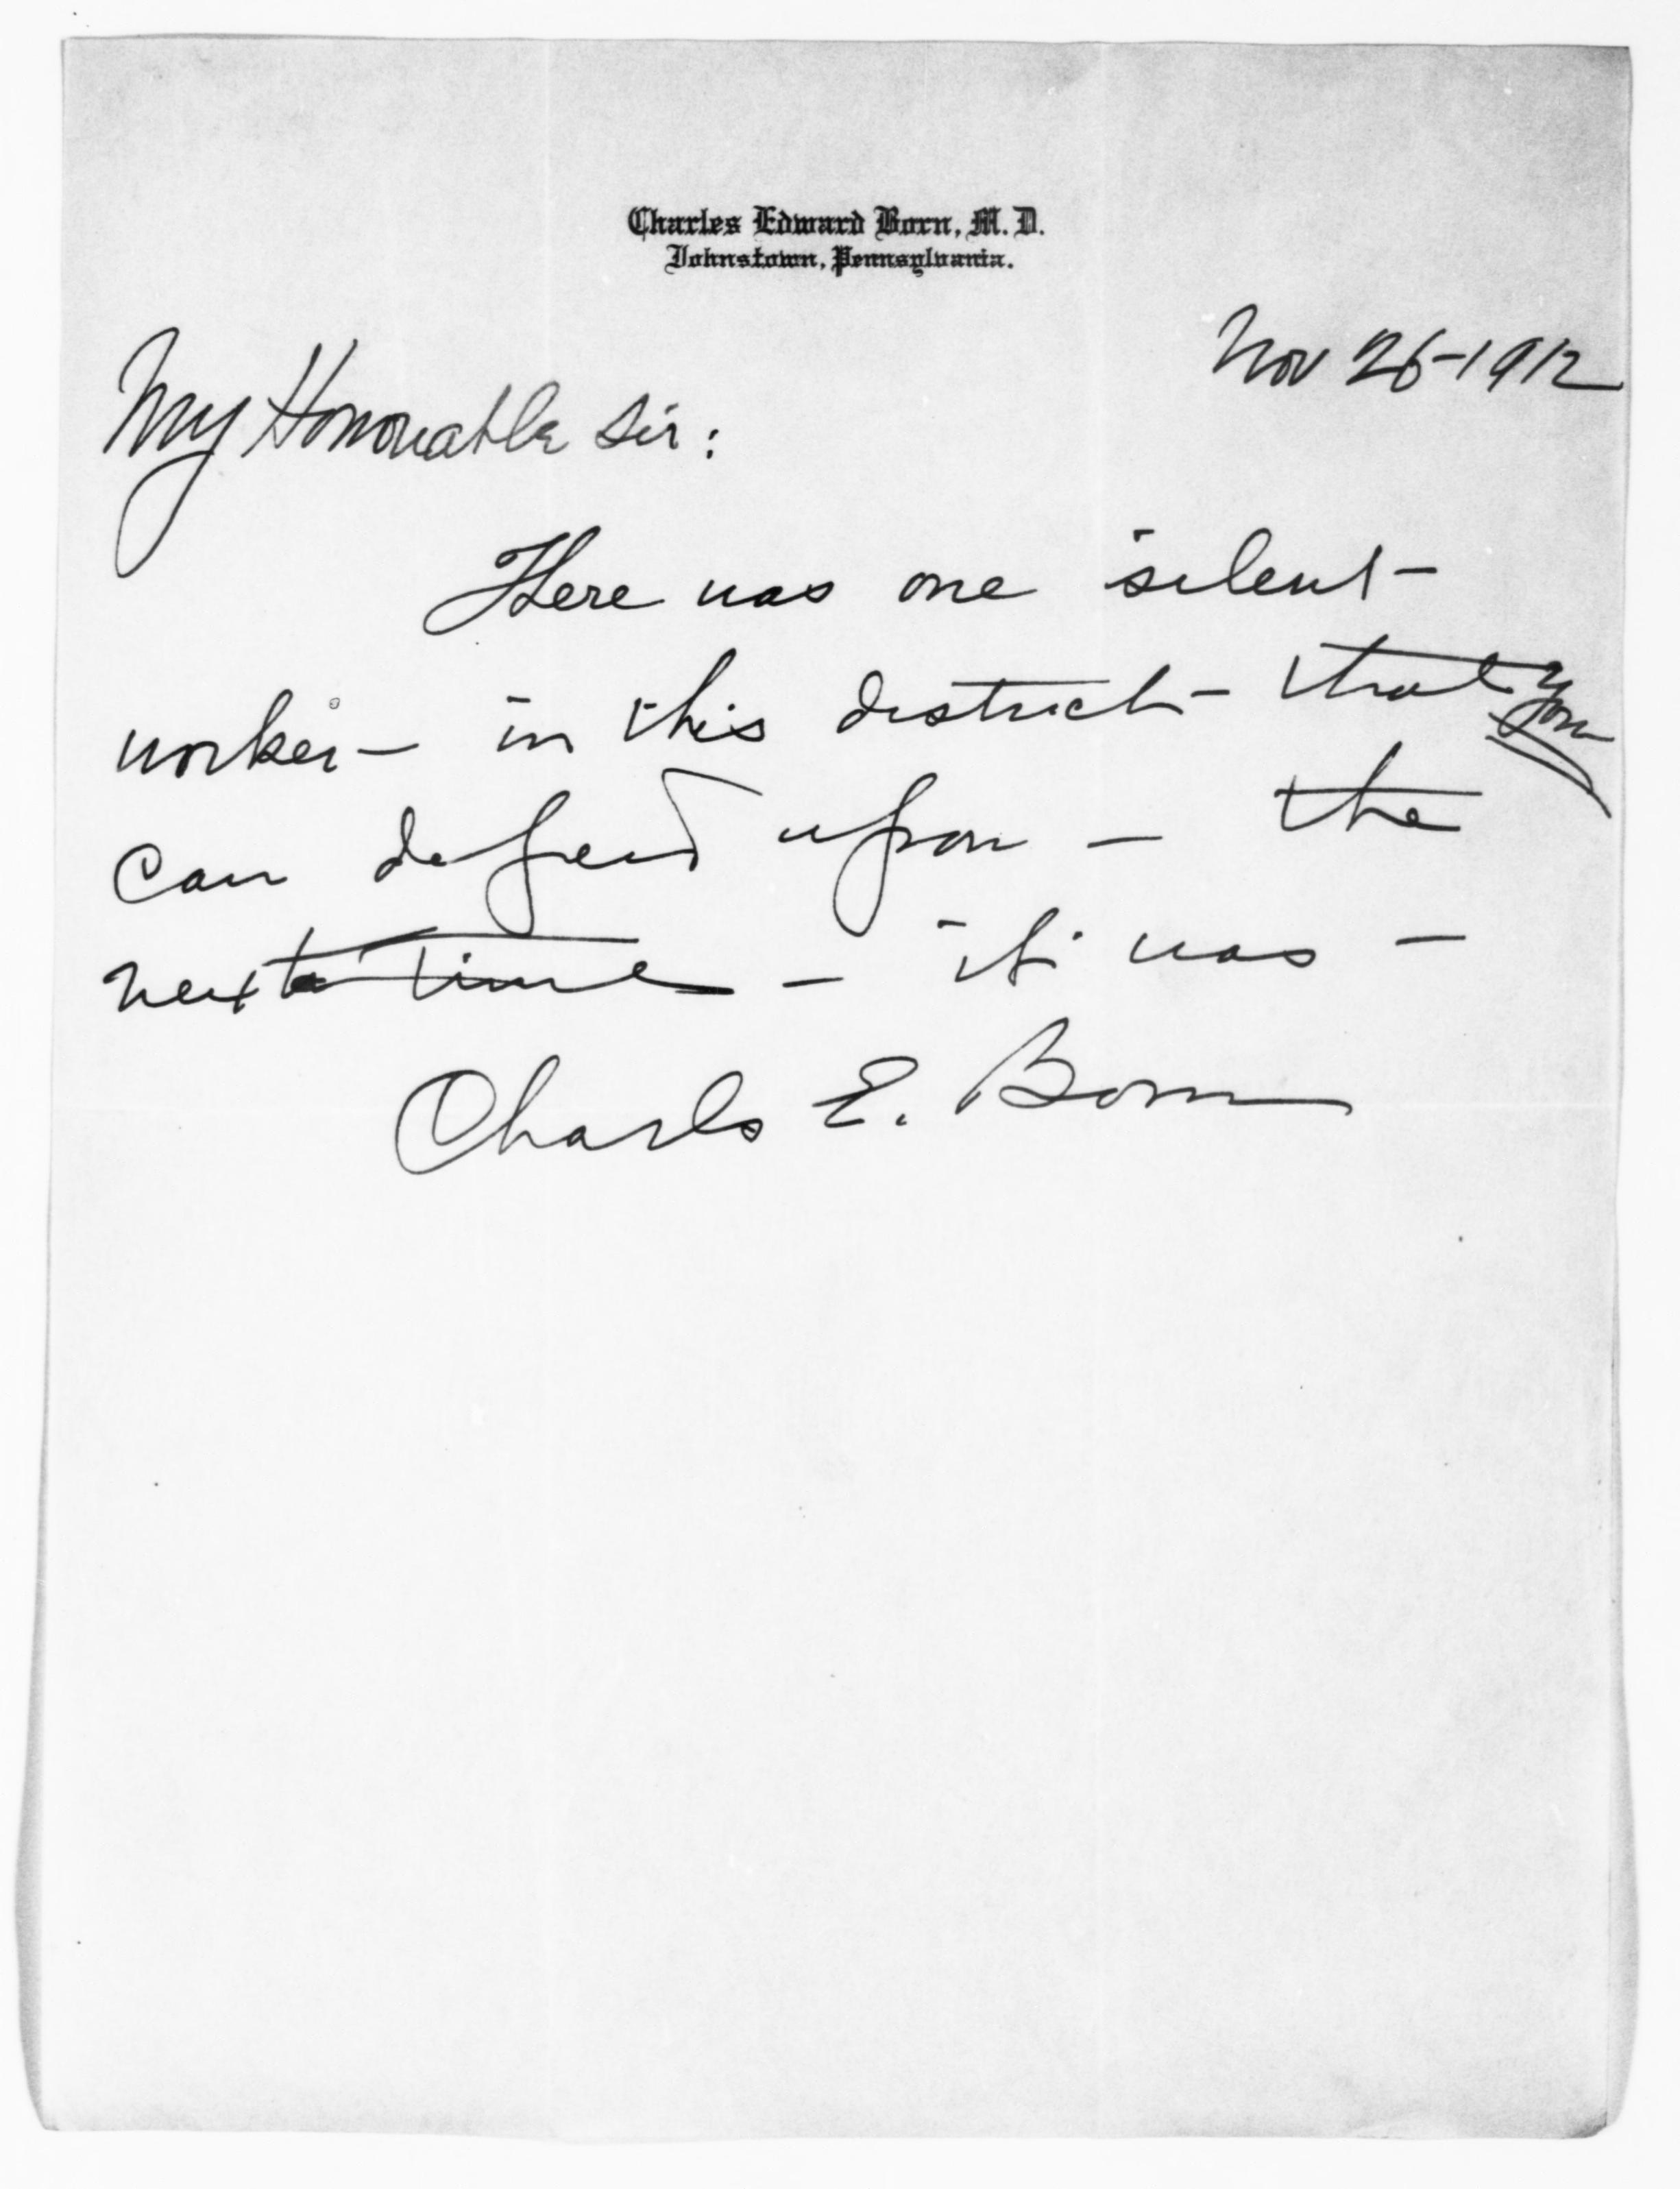 Charles Edward Born, M. D.
Johnstown, Pennsylvania.
Nov 26-1912
My Honorable Sir:
There was one silent-
worker- in this district- that you
can depend upon - the
next time - it was -
Charles E. Born